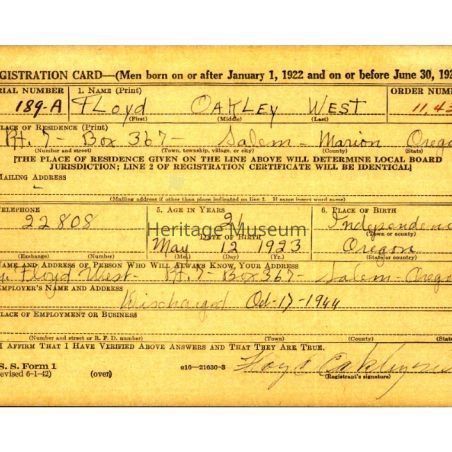 EGISTRATION CARD—(Men born on or after January 1, 1922 and on or before June 30, 192
ERIAL NUMBER 1. NAME (Print) ORDER NUMBER
189-A FLoyd OAKLEY WEST 11,43
(First) (Middle) (Last)
PLACE OF RESIDENCE (Print)
Rt. 7- Box 367- Salem- Marion Orego
(Number and street) (Town, township, village, or city) (County) (State)
[THE PLACE OF RESIDENCE GIVEN ON THE LINE ABOVE WILL DETERMINE LOCAL BOARD
JURISDICTION; LINE 2 OF REGISTRATION CERTIFICATE WILL BE IDENTICAL]
MAILING ADDRESS
-
[Mailing address if other than place indicated on line 2. If same insert word same]
TELEPHONE 5. AGE IN YEARS 6. PLACE OF BIRTH
22808 21 Independence
Heritage Museum (Town or county)
DATE OF BIRTH
May 12 1923 Oregon
(Exchange) (Number) (Mo.) (Day) (Yr.) (State or country)
NAME AND ADDRESS OF PERSON WHO WILL ALWAYS KNOW YOUR ADDRESS
Floyd West Rt. 7- Box 367- Salem- Orego
EMPLOYER'S NAME AND ADDRESS
Discharged Oct-17-1944
PLACE OF EMPLOYMENT OR BUSINESS
(Number and street or R. F. D. number) (Town) (County) (State)
I AFFIRM THAT I HAVE VERIFIED ABOVE ANSWERS AND THAT THEY ARE TRUE.
S. S. Form 1
evised 6-1-42) (over) e16—21630-3 Floyd Oakley
(Registrant's signature)